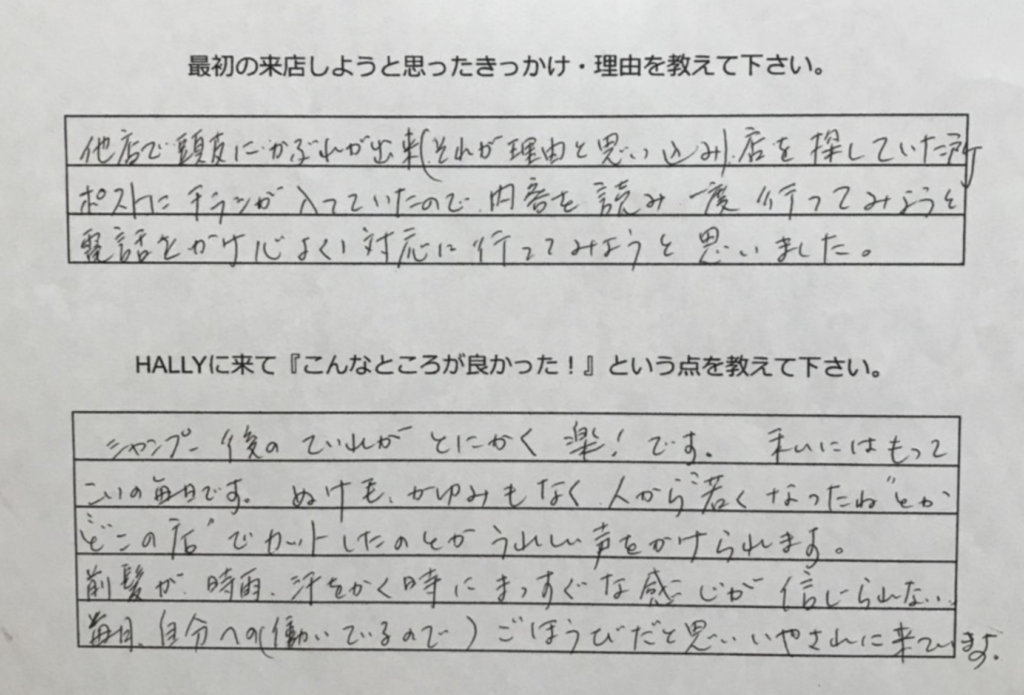 最初の来店しようと思ったきっかけ・理由を教えて下さい。
他店で頭皮にかぶれが出来(それが理由と思い込み)、店を探していた所
ポストにチラシが入っていたので、内容を読み一度行ってみようと
電話をかけ心よく対応に行ってみようと思いました。
HALLYに来て『こんなところが良かった！』という点を教えて下さい。
シャンプー後のていれがとにかく楽！です。私にはもって
こいの毎日です。ぬけ毛、かゆみもなく、人から"若くなったね"とか
"どこの店"でカットしたのとかうれしい声をかけられます。
前髪が、時雨、汗をかく時にまっすぐな感じが信じられない、
毎月、自分への(働いているので)ごほうびだと思いいやされに来ています。